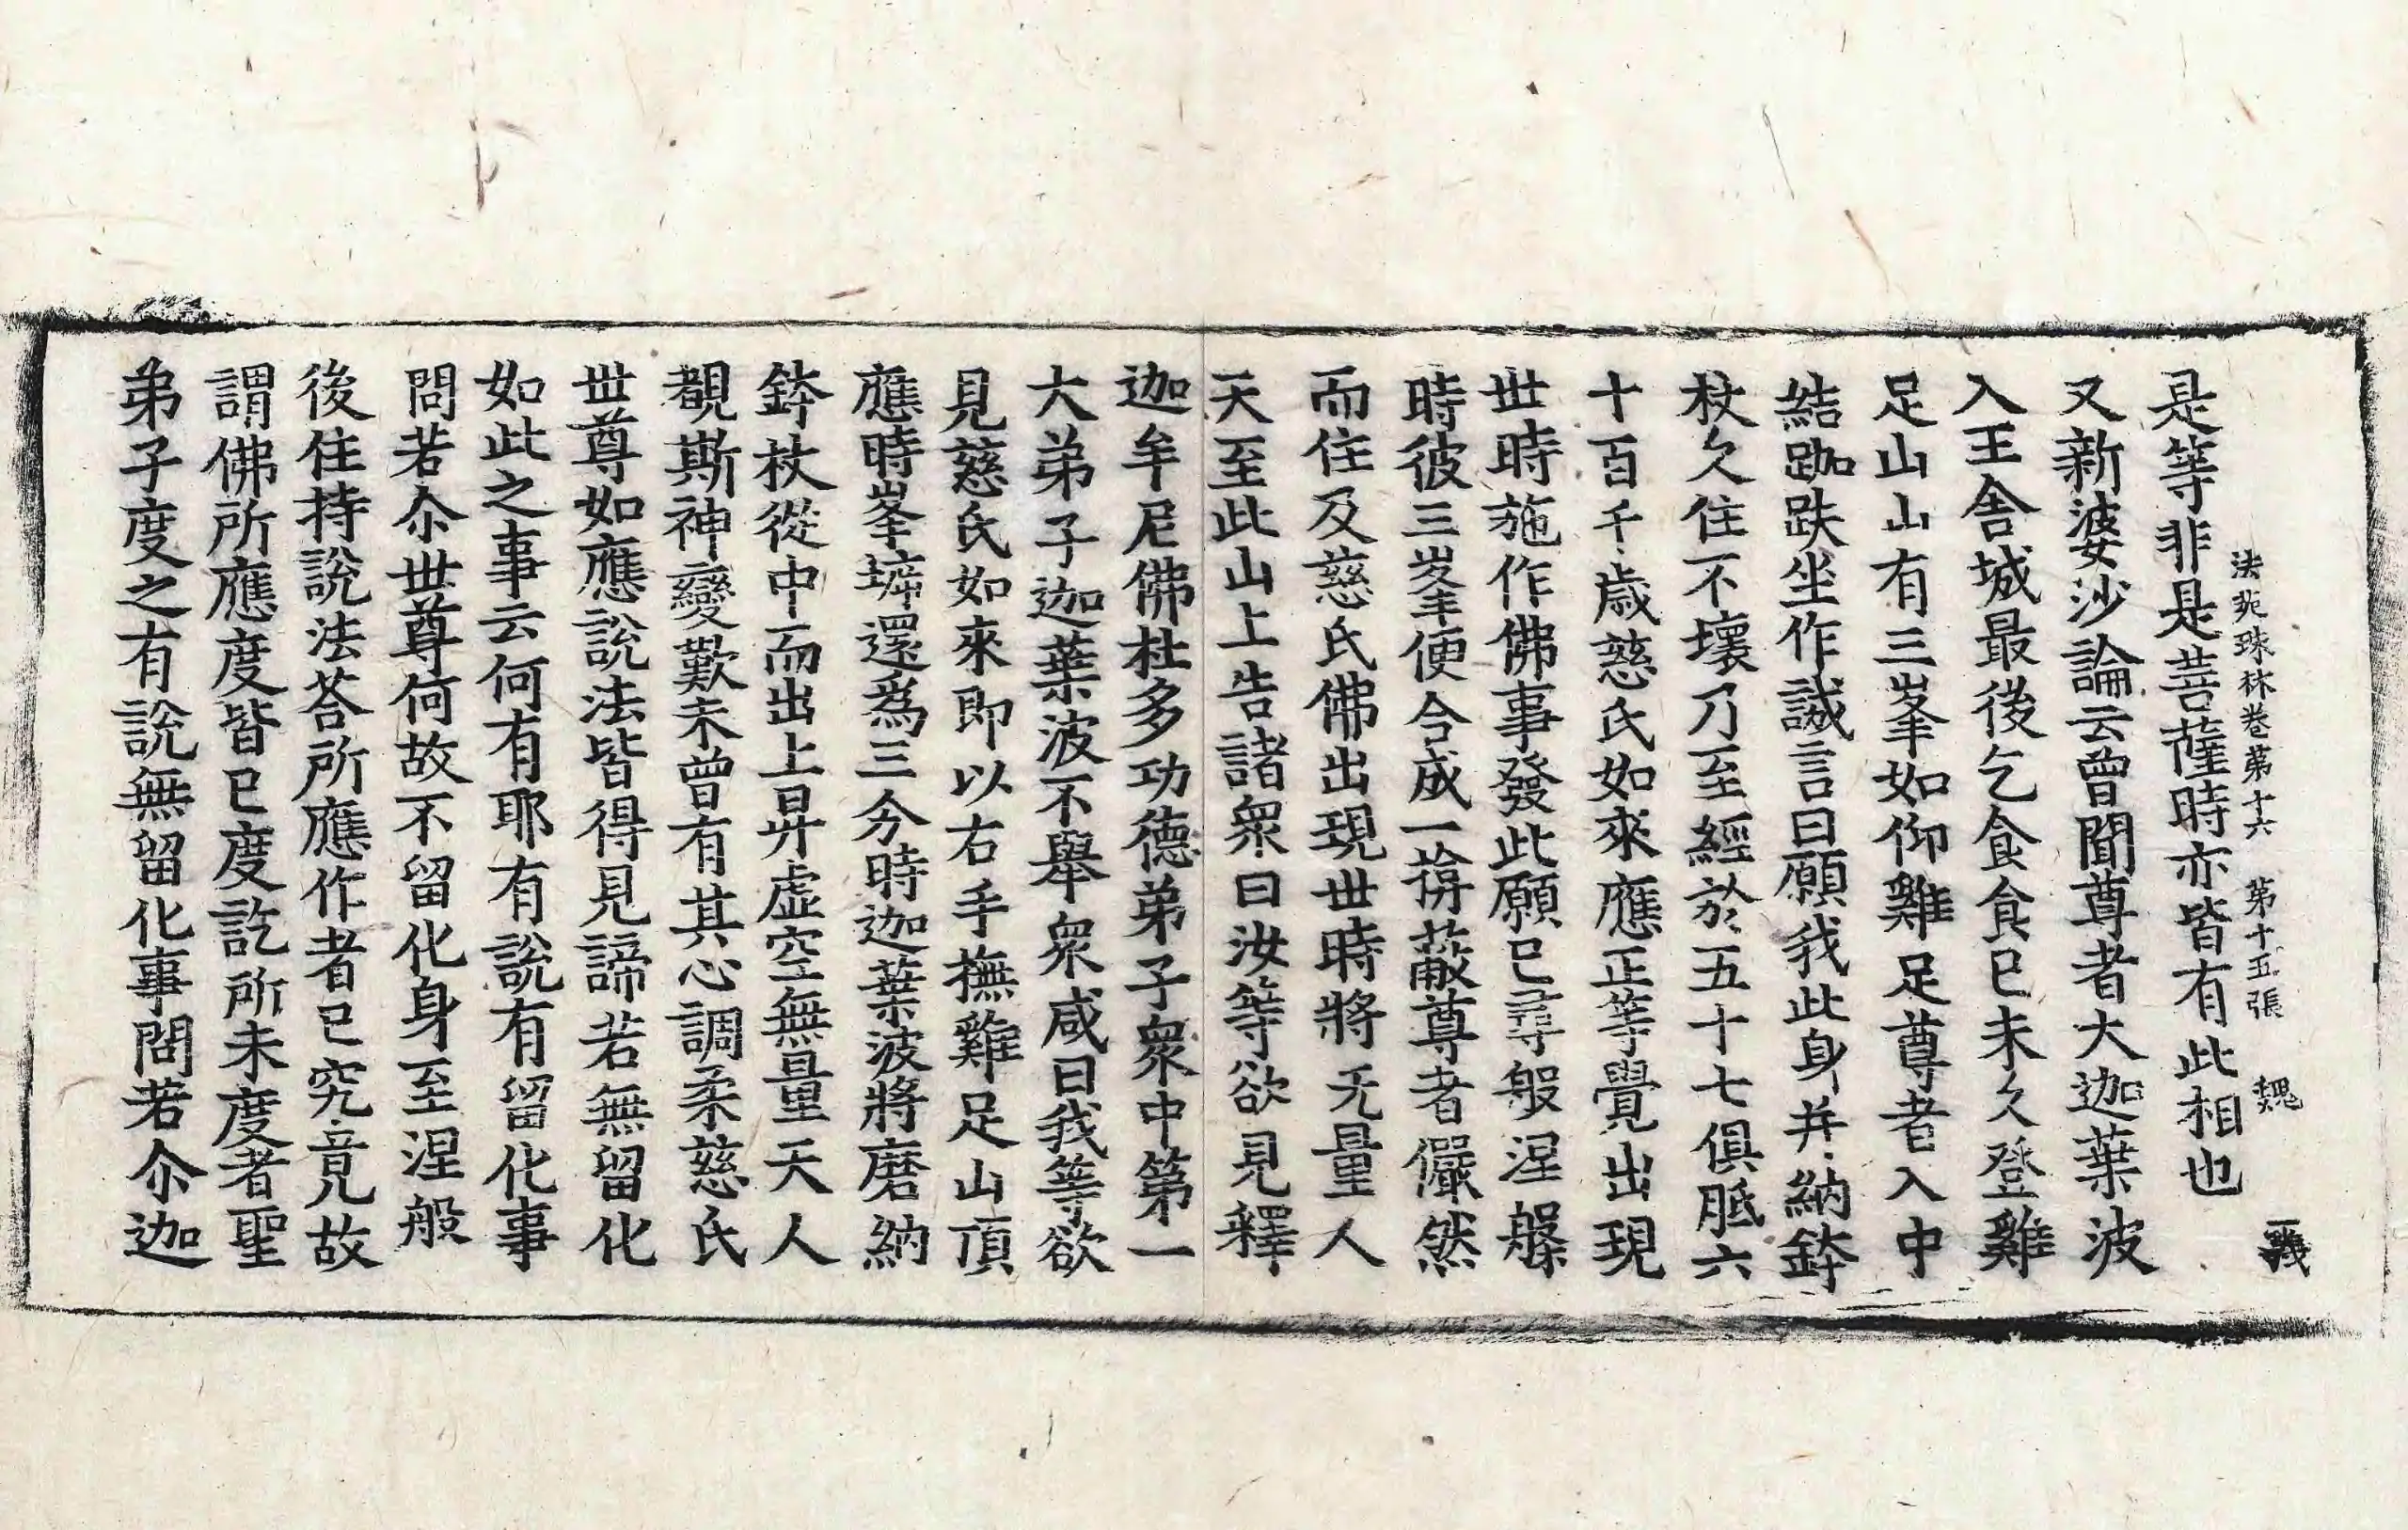 是等非是菩薩時亦皆有此相也
法苑珠林卷第十六 第十五張 魏 義
又新婆沙論云曾聞尊者大迦葉波
入王舍城最後乞食食已未久登雞
足山山有三峯如仰雞足尊者入中
結跏趺坐作誠言曰願我此身并納鉢
杖久住不壞乃至經於五十七俱胝六
十百千歲慈氏如來應正等覺出現
世時施作佛事發此願已尋般涅槃
時彼三峯便合成一揜蔽尊者儼然
而住及慈氏佛出現世時將无量人
天至此山上告諸衆曰汝等欲見釋
迦牟尼佛杜多功德弟子衆中第一
大弟子迦葉波不舉衆咸曰我等欲
見慈氏如來即以右手撫雞足山頂
應時峯㙤還爲三分時迦葉波將磨納
鉢杖從中而出上昇虛空無量天人
覩斯神變歎未曾有其心調柔慈氏
世尊如應說法皆得見諦若無留化
如此之事云何有耶有說有留化事
問若尒世尊何故不留化身至涅般
後住持說法荅所應作者已究竟故
謂佛所應度皆已度訖所未度者聖
弟子度之有說無留化事問若尒迦